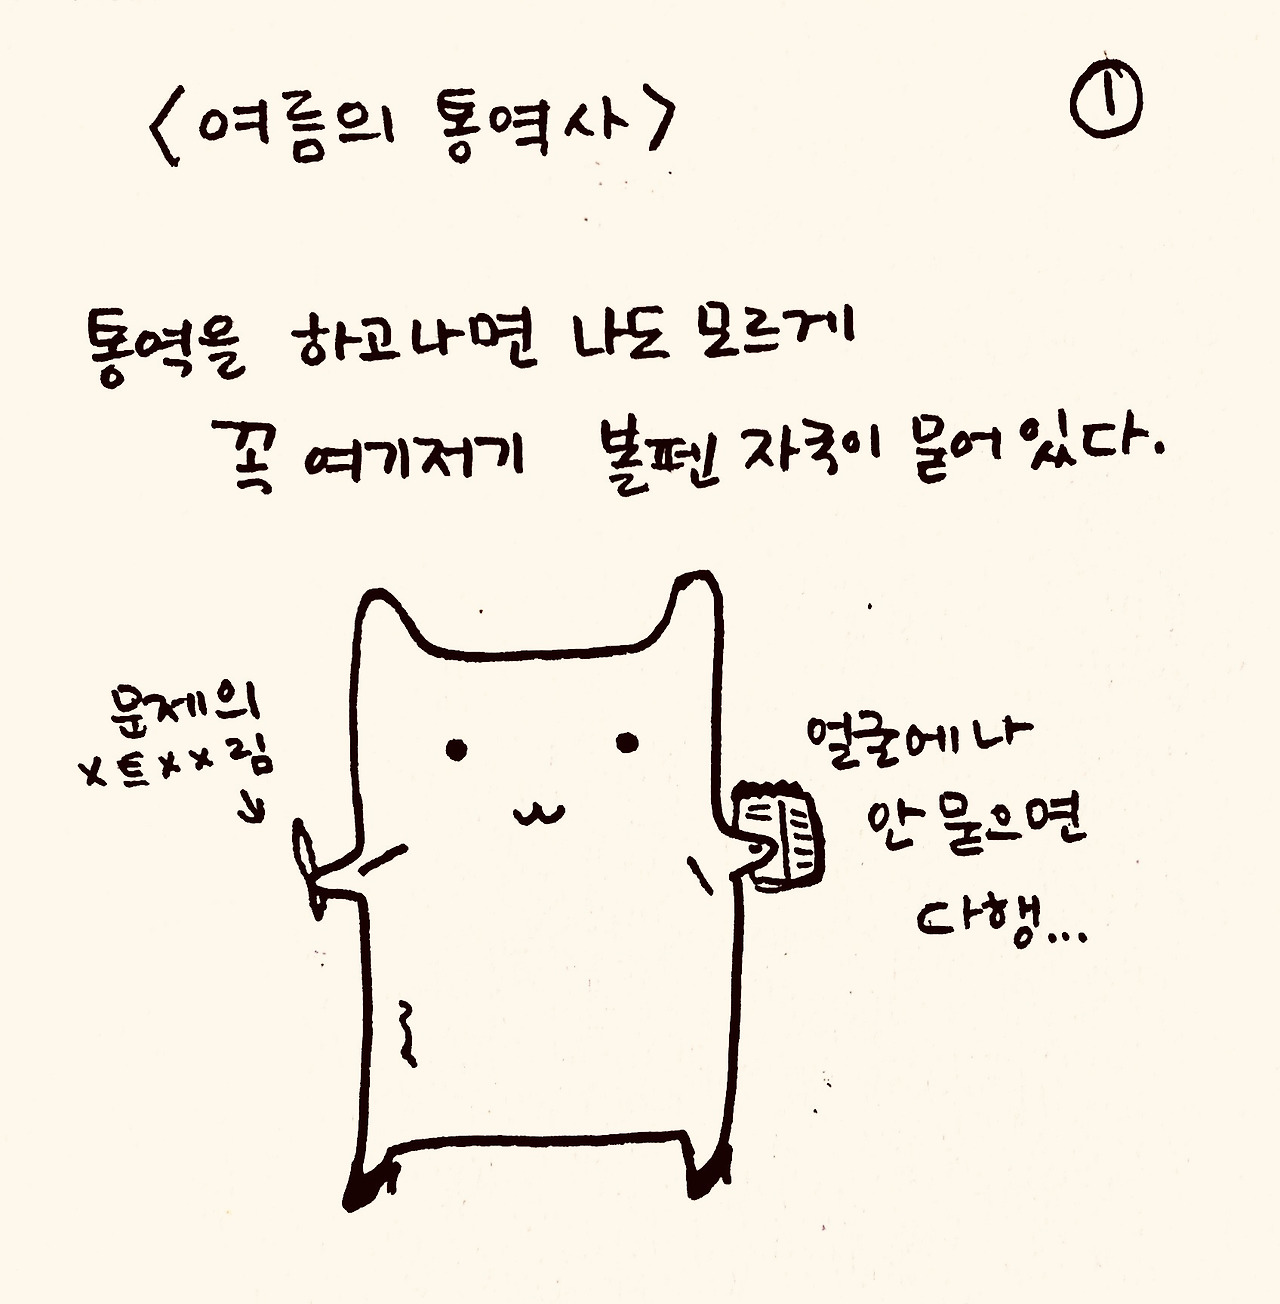 <여름의 통역사>
①
통역을 하고나면 나도 모르게
꼭 여기저기 볼펜 자국이 묻어 있다.
문제의
x트xx림
↘
얼굴에나
안 묻으면
다행...